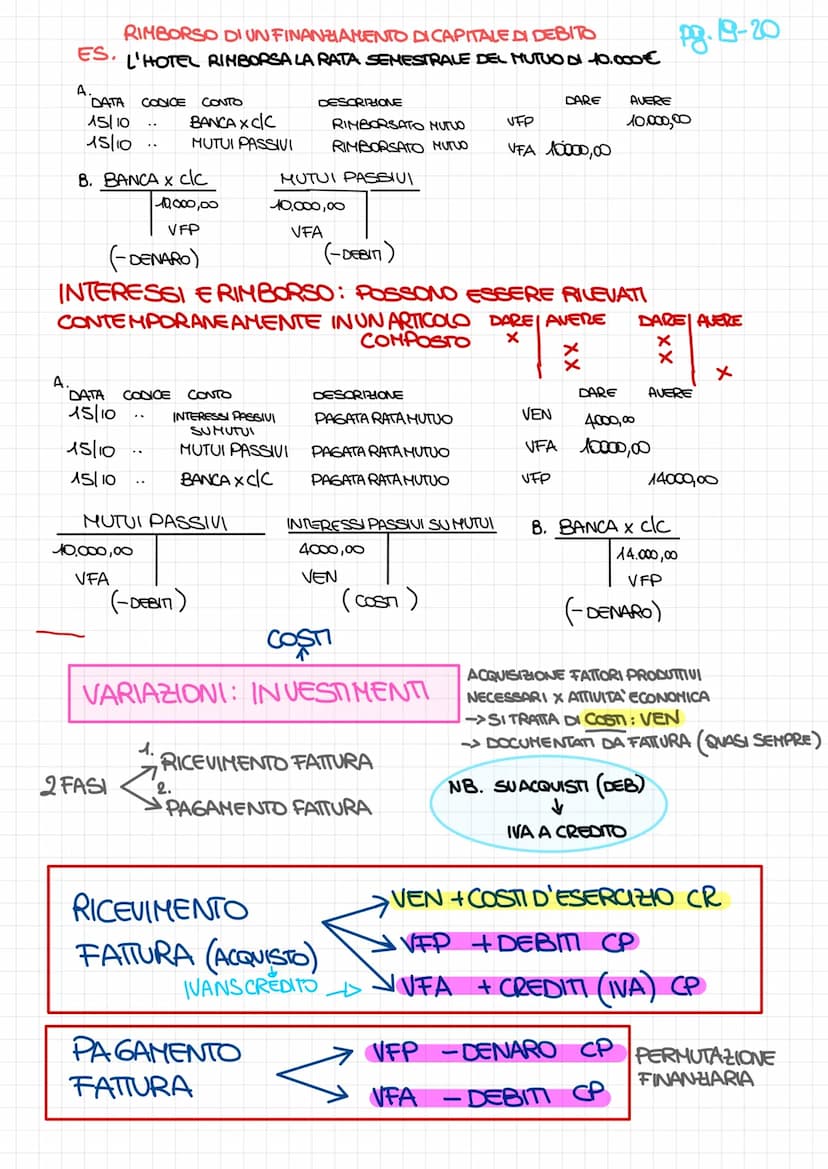 RIMBORSO DI UN FINANZIAMENTO DI CAPITALE DI DEBITO pg. 19-20
ES. L'HOTEL RIMBORSA LA RATA SEMESTRALE DEL MUTUO DI 10.000€
A.
DATA CODICE CONTO DESCRIZIONE DARE AVERE
15/10 .. BANCA x c/c RIMBORSATO MUTUO VFP 10.000,00
15/10 .. MUTUI PASSIVI RIMBORSATO MUTUO VFA 10000,00
B. BANCA x c/c MUTUI PASSIVI
10.000,00 10.000,00
VFP VFA
(-DENARO) (-DEBITI)
INTERESSI E RIMBORSO: POSSONO ESSERE RILEVATI
CONTEMPORANEAMENTE IN UN ARTICOLO DARE AVERE DARE AVERE
COMPOSTO x x
x x
x x
A.
DATA CODICE CONTO DESCRIZIONE DARE AVERE
15/10 .. INTERESSI PASSIVI PAGATA RATA MUTUO VEN 4000,00
SU MUTUI
15/10 .. MUTUI PASSIVI PAGATA RATA MUTUO VFA 10000,00
15/10 .. BANCA x c/c PAGATA RATA MUTUO VFP 14000,00
MUTUI PASSIVI INTERESSI PASSIVI SU MUTUI B. BANCA x c/c
10.000,00 4000,00 14.000,00
VFA VEN VFP
(-DEBITI) (COSTI) (-DENARO)
COSTI
VARIAZIONI: INVESTIMENTI
ACQUISIZIONE FATTORI PRODUTTIVI
NECESSARI x ATTIVITA' ECONOMICA
-> SI TRATTA DI COSTI: VEN
-> DOCUMENTATI DA FATTURA (QUASI SEMPRE)
2 FASI
1. RICEVIMENTO FATTURA
2. PAGAMENTO FATTURA
NB. SU ACQUISTI (DEB)
↓
IVA A CREDITO
RICEVIMENTO
FATTURA (ACQUISTO)
IVA NS CREDITO ->
VEN + COSTI D'ESERCIZIO CR
VFP + DEBITI CP
VFA + CREDITI (IVA) CP
PAGAMENTO
FATTURA
VFP - DENARO CP
VFA - DEBITI CP
PERMUTAZIONE
FINANZIARIA